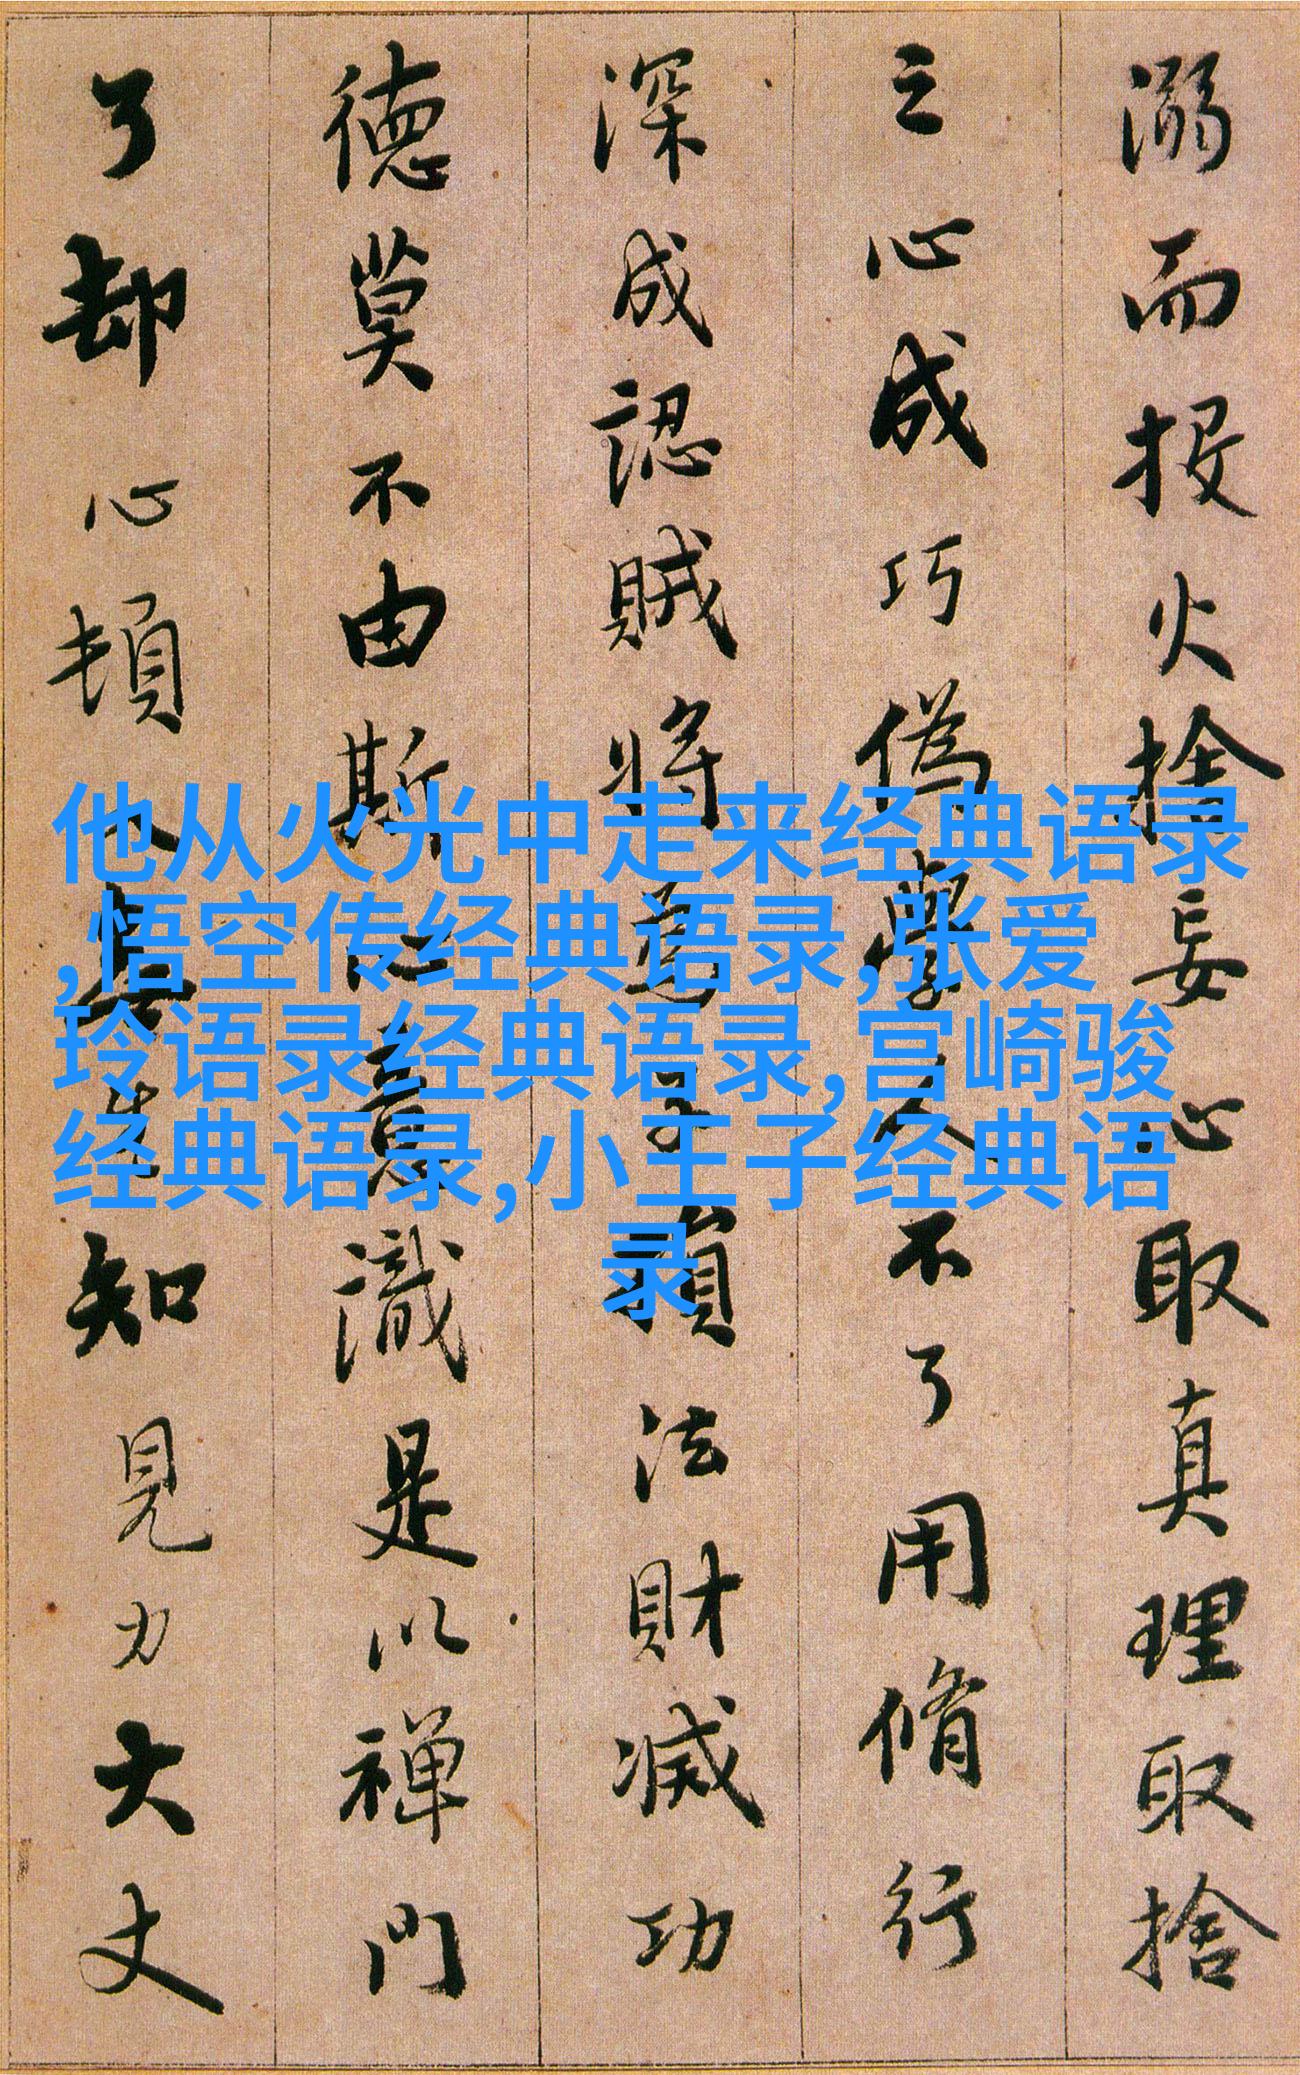 溺而投火捨妄心取真理取捨
之心成巧偽學人不了用脩行
深成認賊將為子損法財滅功
德莫不由斯心意識是以禪門
了却心頓入無生知見力大丈
他从火光中走来经典语录
,悟空传经典语录,张爱
玲语录经典语录,宫崎骏
经典语录,小王子经典语
录